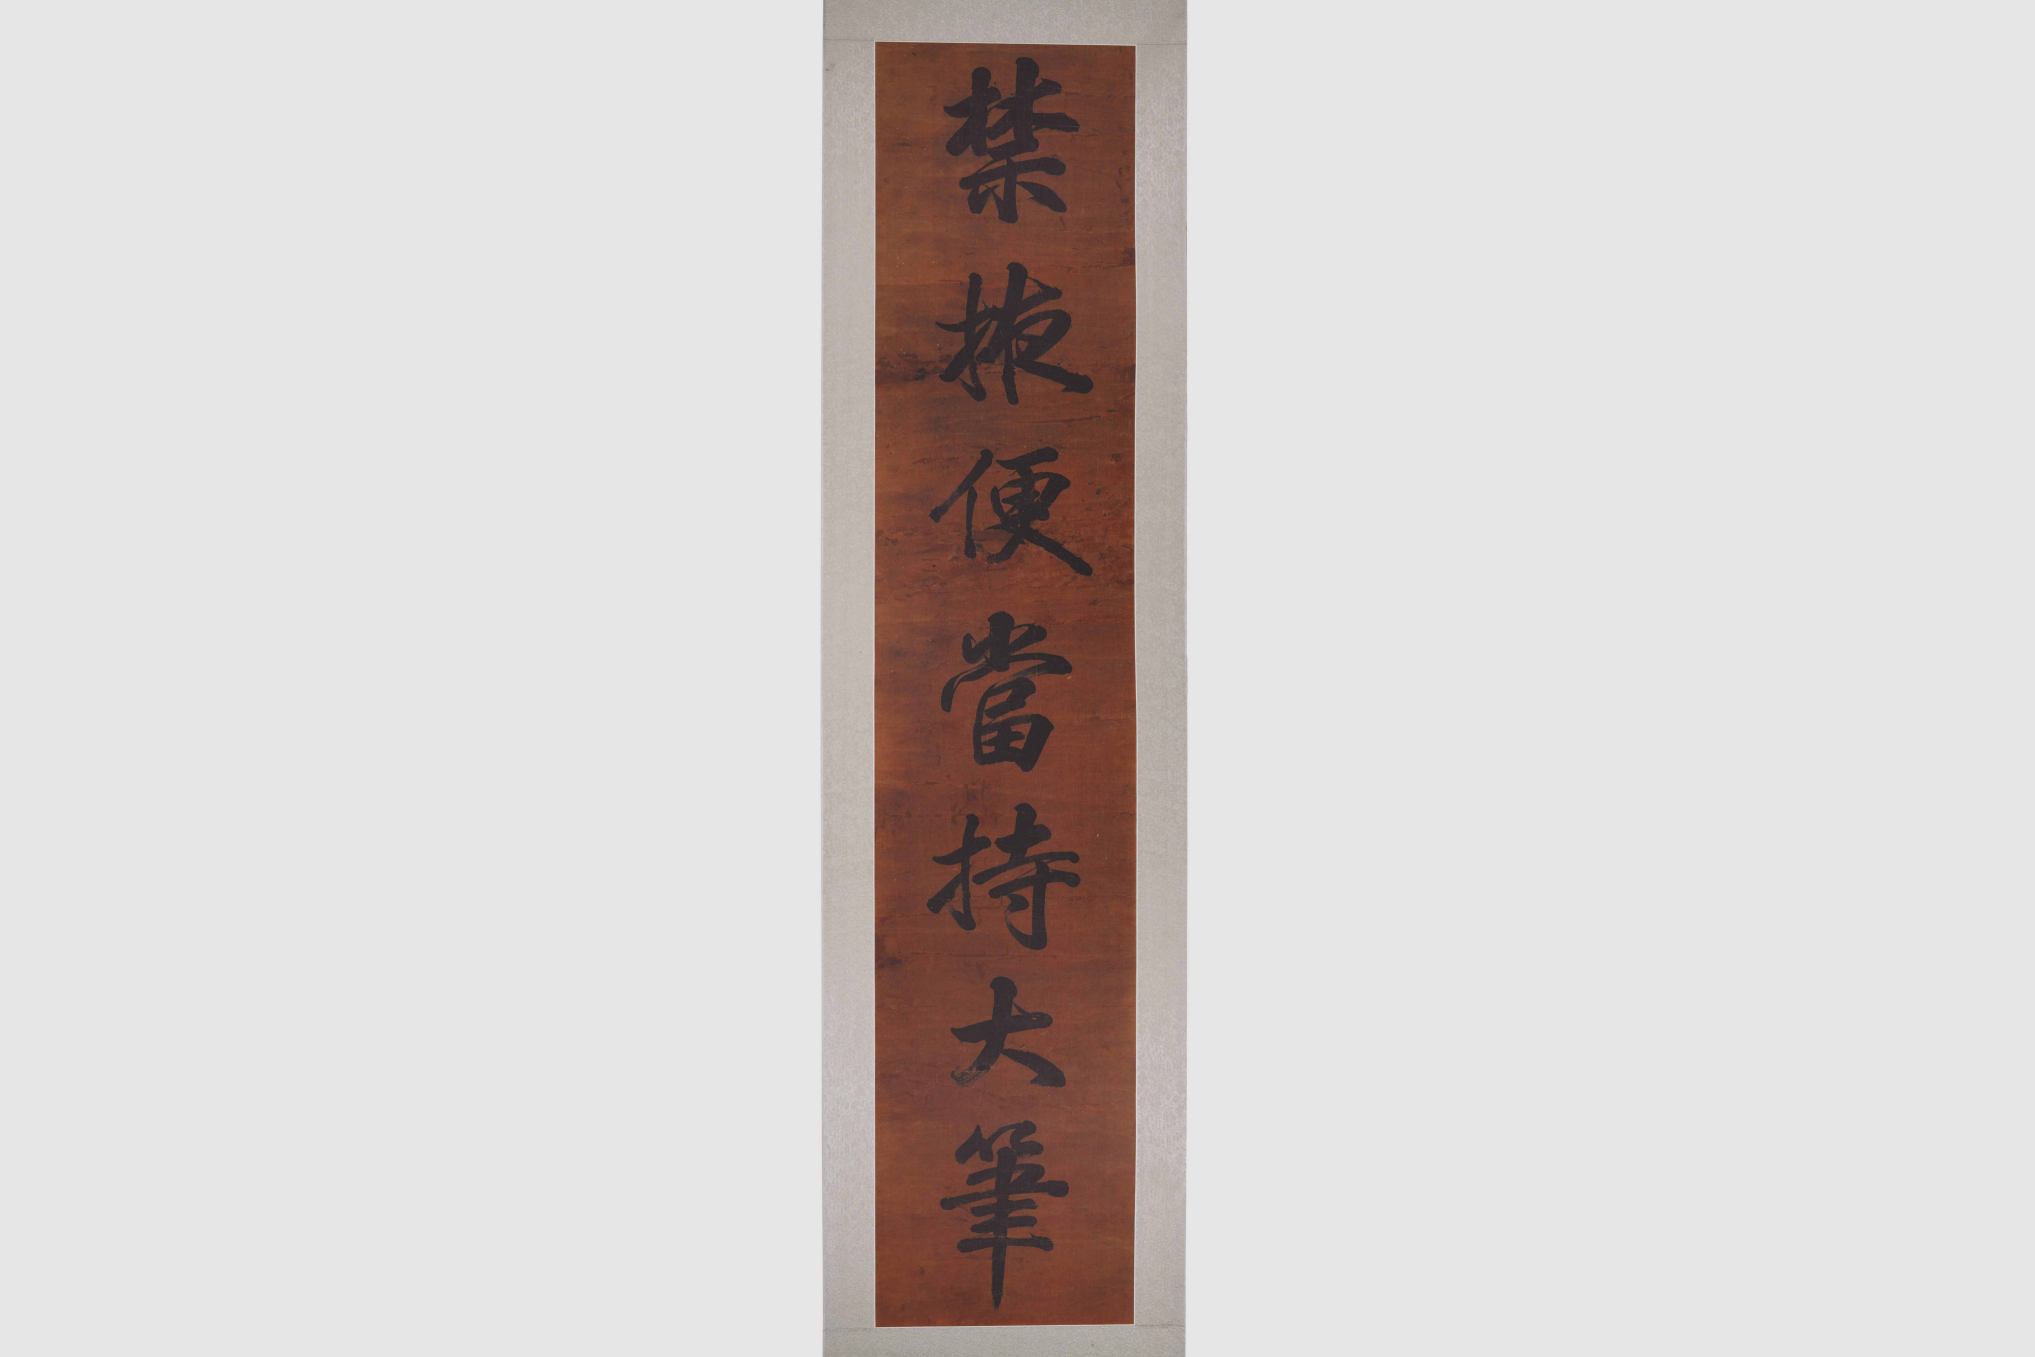 禁掖便當持大筆